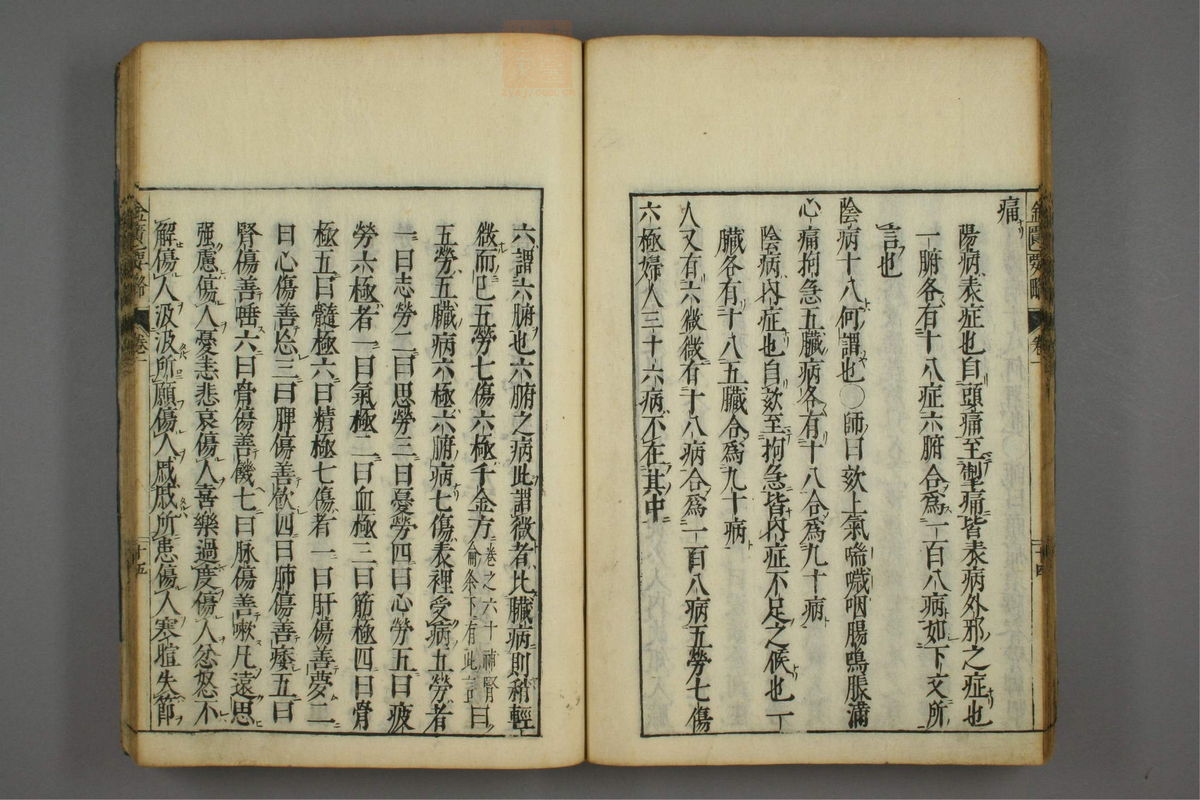 金匱要略 卷一 十四
痛
陽病表症也自頭痛至掣痛皆表病外邪之症也
一腑各有十八症六腑合爲一百八病如下文所
言也
陰病十八何謂也○師曰欬上氣喘噦咽腸鳴脹滿
心痛拘急五臟病各有十八合爲九十病
陰病內症也自欬至拘急皆內症不足之候也一
臟各有十八五臟合爲九十病
人又有六微微有十八病合爲一百八病五勞七傷
六極婦人三十六病不在其中
六謂六腑也六腑之病此謂微者比臟病則稍輕
微而已五勞七傷六極千金方卷之六十補腎論条下有此言曰
五勞五臟病六極六腑病七傷表裡受病五勞者
一曰志勞二曰思勞三曰憂勞四曰心勞五曰疲
勞六極者一曰氣極二曰血極三曰筋極四曰骨
極五曰髓極六曰精極七傷者一曰肝傷善夢二
曰心傷善忘三曰脾傷善飲四曰肺傷善痿五曰
腎傷善唾六曰骨傷善饑七曰脉傷善嗽凡遠思
强慮傷人憂恚悲哀傷人喜樂過度傷人忿怒不
解傷人汲汲所願傷人戚戚所患傷人寒暄失節
金匱要略 卷一 十五